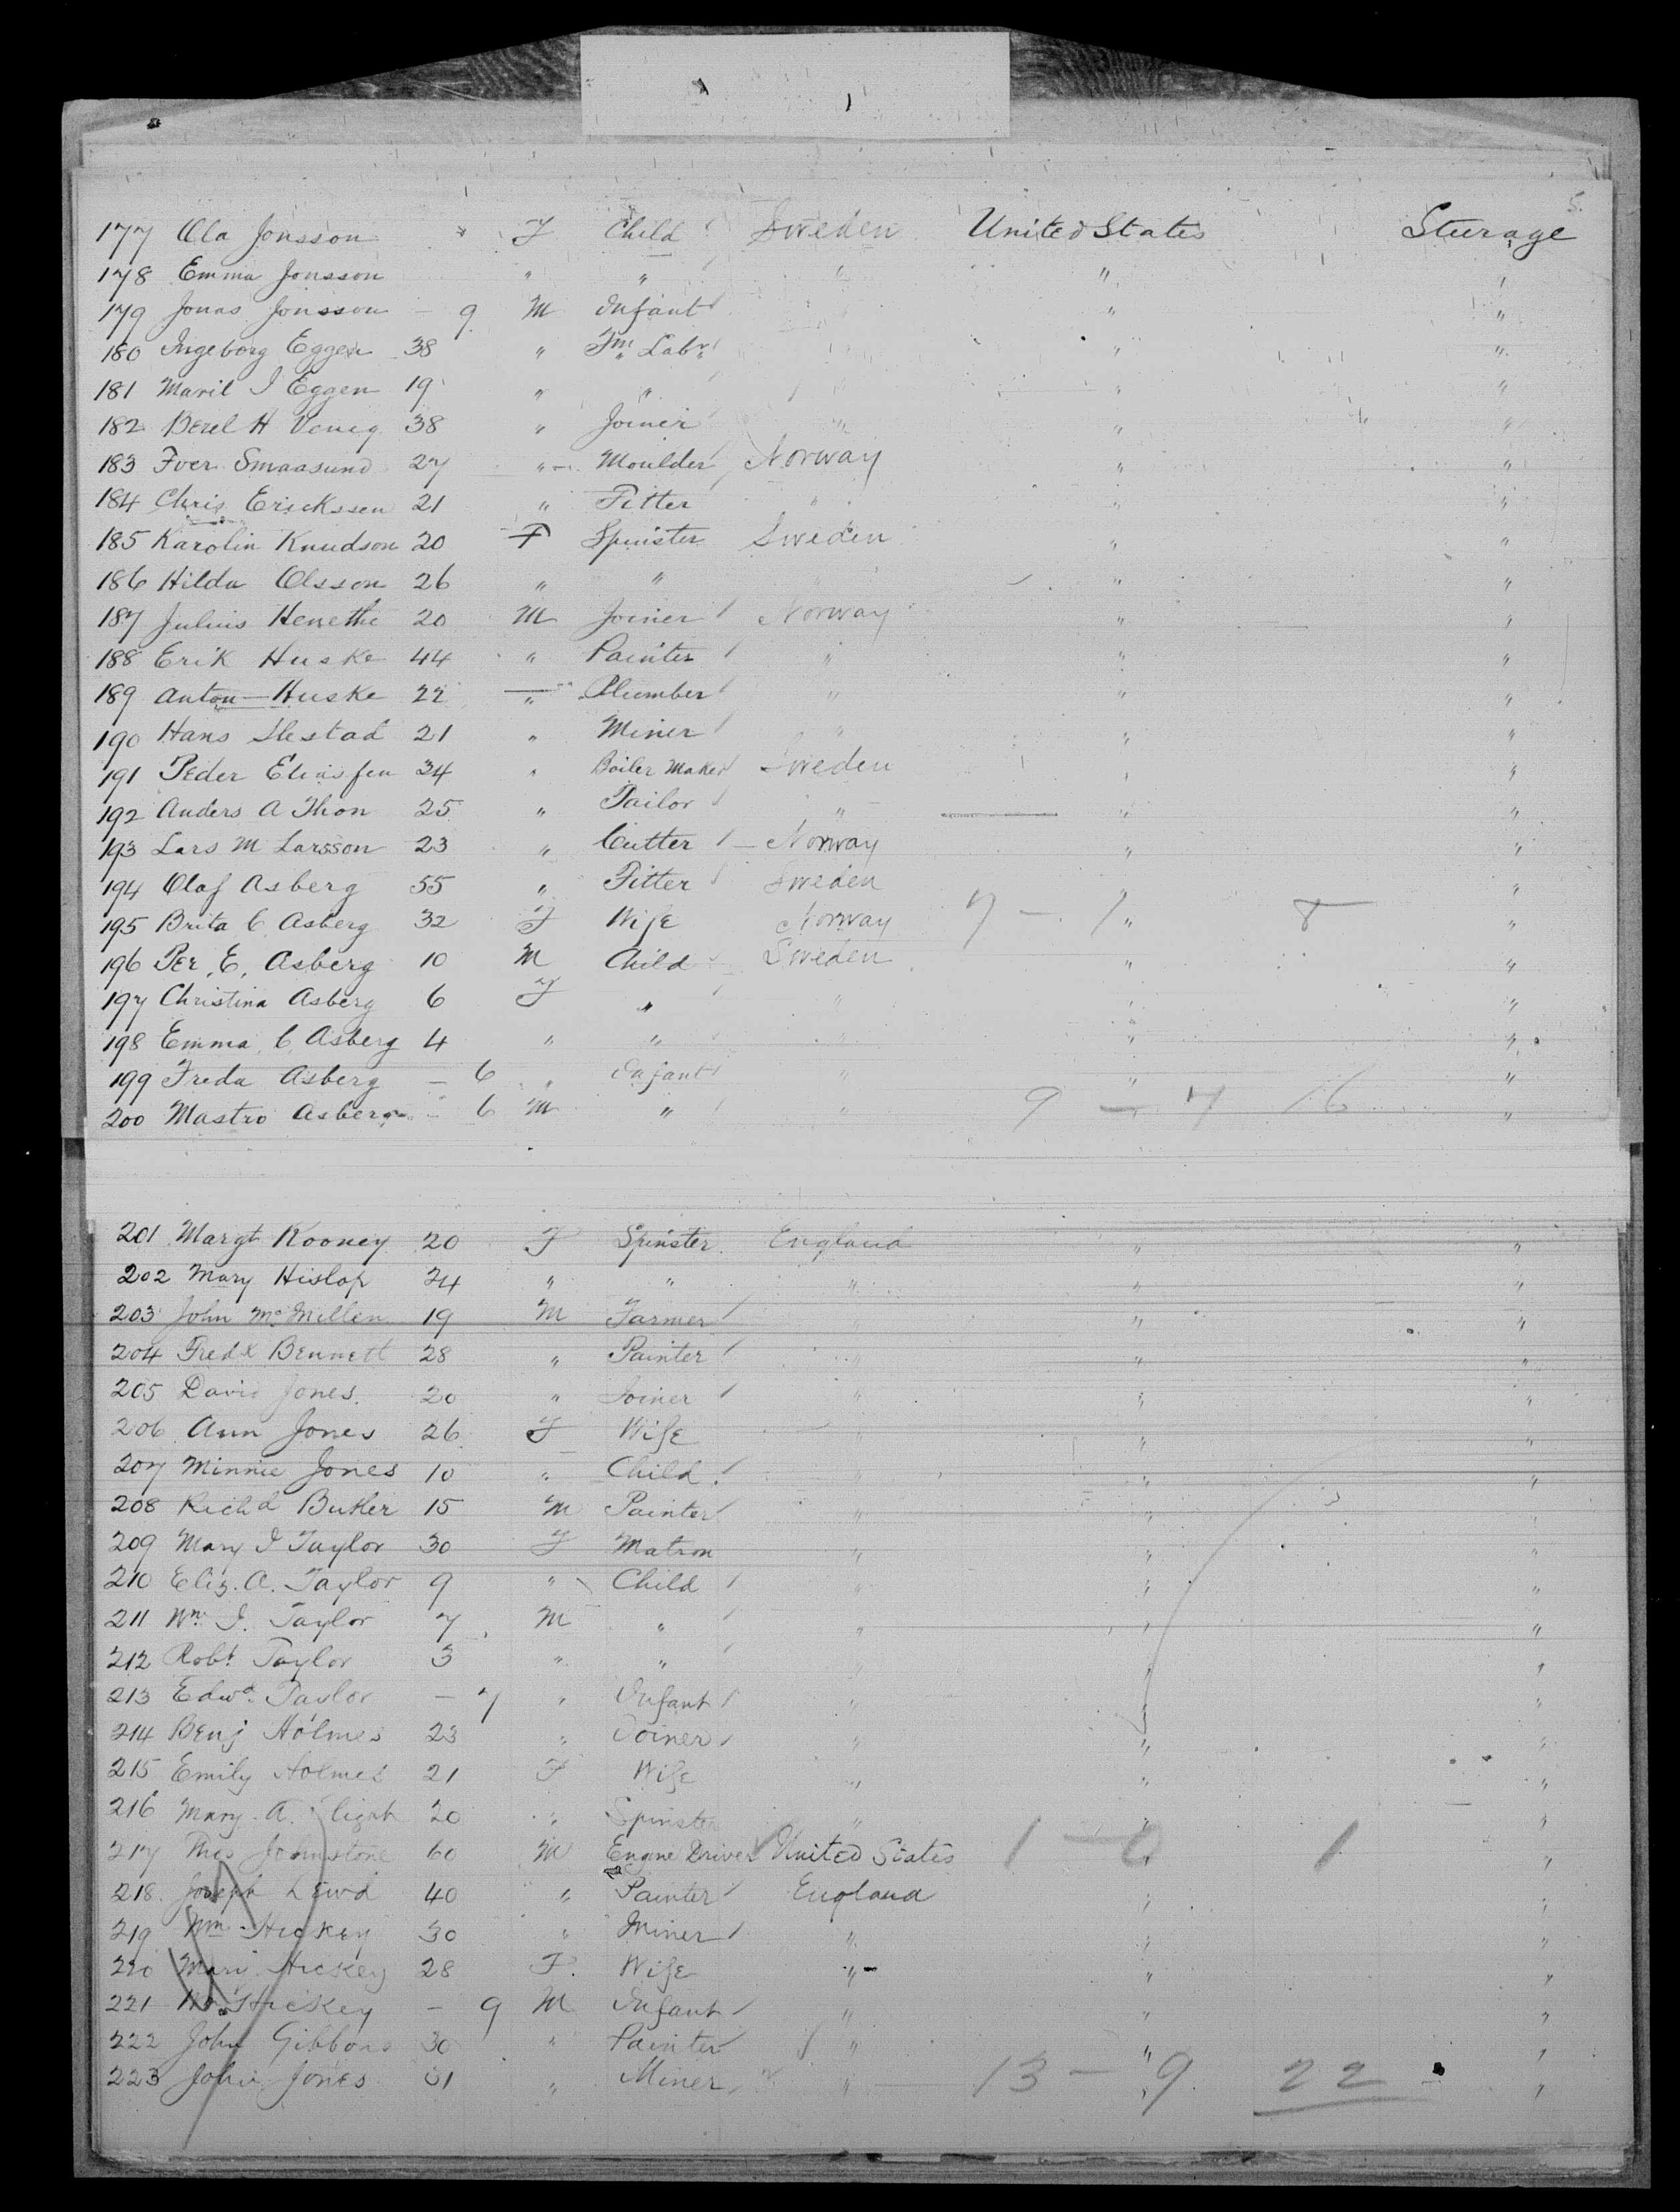 5.
177 Ola Jonsson " F Child Sweden United States Sturage
178 Emma Jonsson " " " " "
179 Jonas Jonsson - 9 M Infant " "
180 Ingeborg Eggen 38 " Fm Labr " "
181 Maril I Eggen 19 " " " "
182 Berel H 38 " Joiner " " "
183 Iver Smaasund 27 " Moulder Norway " "
184 Chris Erickssen 21 " Fitter " " "
185 Karolin Knudson 20 F Spinster Sweden " "
186 Hilda Olsson 26 " " " " "
187 Julius Henethe 20 M Joiner Norway " "
188 Erik Huske 44 " Painter " " "
189 Anton Huske 22 " Plumber " " "
190 Hans 21 " Miner " " "
191 Peder Eliasfen 34 " Boiler Maker Sweden " "
192 Anders A Thon 25 " Tailor " " "
193 Lars M Larsson 23 " Cutter - Norway " "
194 Olaf Asberg 55 " Fitter Sweden " "
195 Brita C Asberg 32 F Wife Norway 7 - 1 " 8 "
196 Per. E. Asberg 10 M Child Sweden " "
197 Christina Asberg 6 F " " " "
198 Emma C Asberg 4 " " " " "
199 Freda Asberg - 6 " Infant " " "
200 Mastro Asberg - 6 M " " 9 - 7 16 "
201 Margt Rooney 20 F Spinster England " "
202 Mary Hislop 24 " " " " "
203 John McMillen 19 M Farmer " " "
204 Fredk Bennett 28 " Painter " " "
205 David Jones 20 " Joiner " " "
206 Ann Jones 26 F Wife " " "
207 Minnie Jones 10 " Child " " "
208 Richd Butler 15 M Painter " " "
209 Mary I Taylor 30 F Matron " " "
210 Eliz. A. Taylor 9 " Child " " "
211 Wm I. Taylor 7 M " " " "
212 Robt Taylor 3 " " " " "
213 Edwd Taylor - 7 " Infant " " "
214 Benj Holmes 23 " Joiner " " "
215 Emily Holmes 21 F Wife " " "
216 Mary A. 20 " Spinster " " "
217 Thos Johnstone 60 M Engine Driver United States 1 - 0 " 1 "
218 Joseph Lewd 40 " Painter England " "
219 Wm Hickey 30 " Miner " " "
220 Mary Hickey 28 F. Wife " " "
221 Wm Hickey - 9 M Infant " " "
222 John Gibbons 30 " Painter " " "
223 John Jones 31 " Miner " 13 - 9 22 "